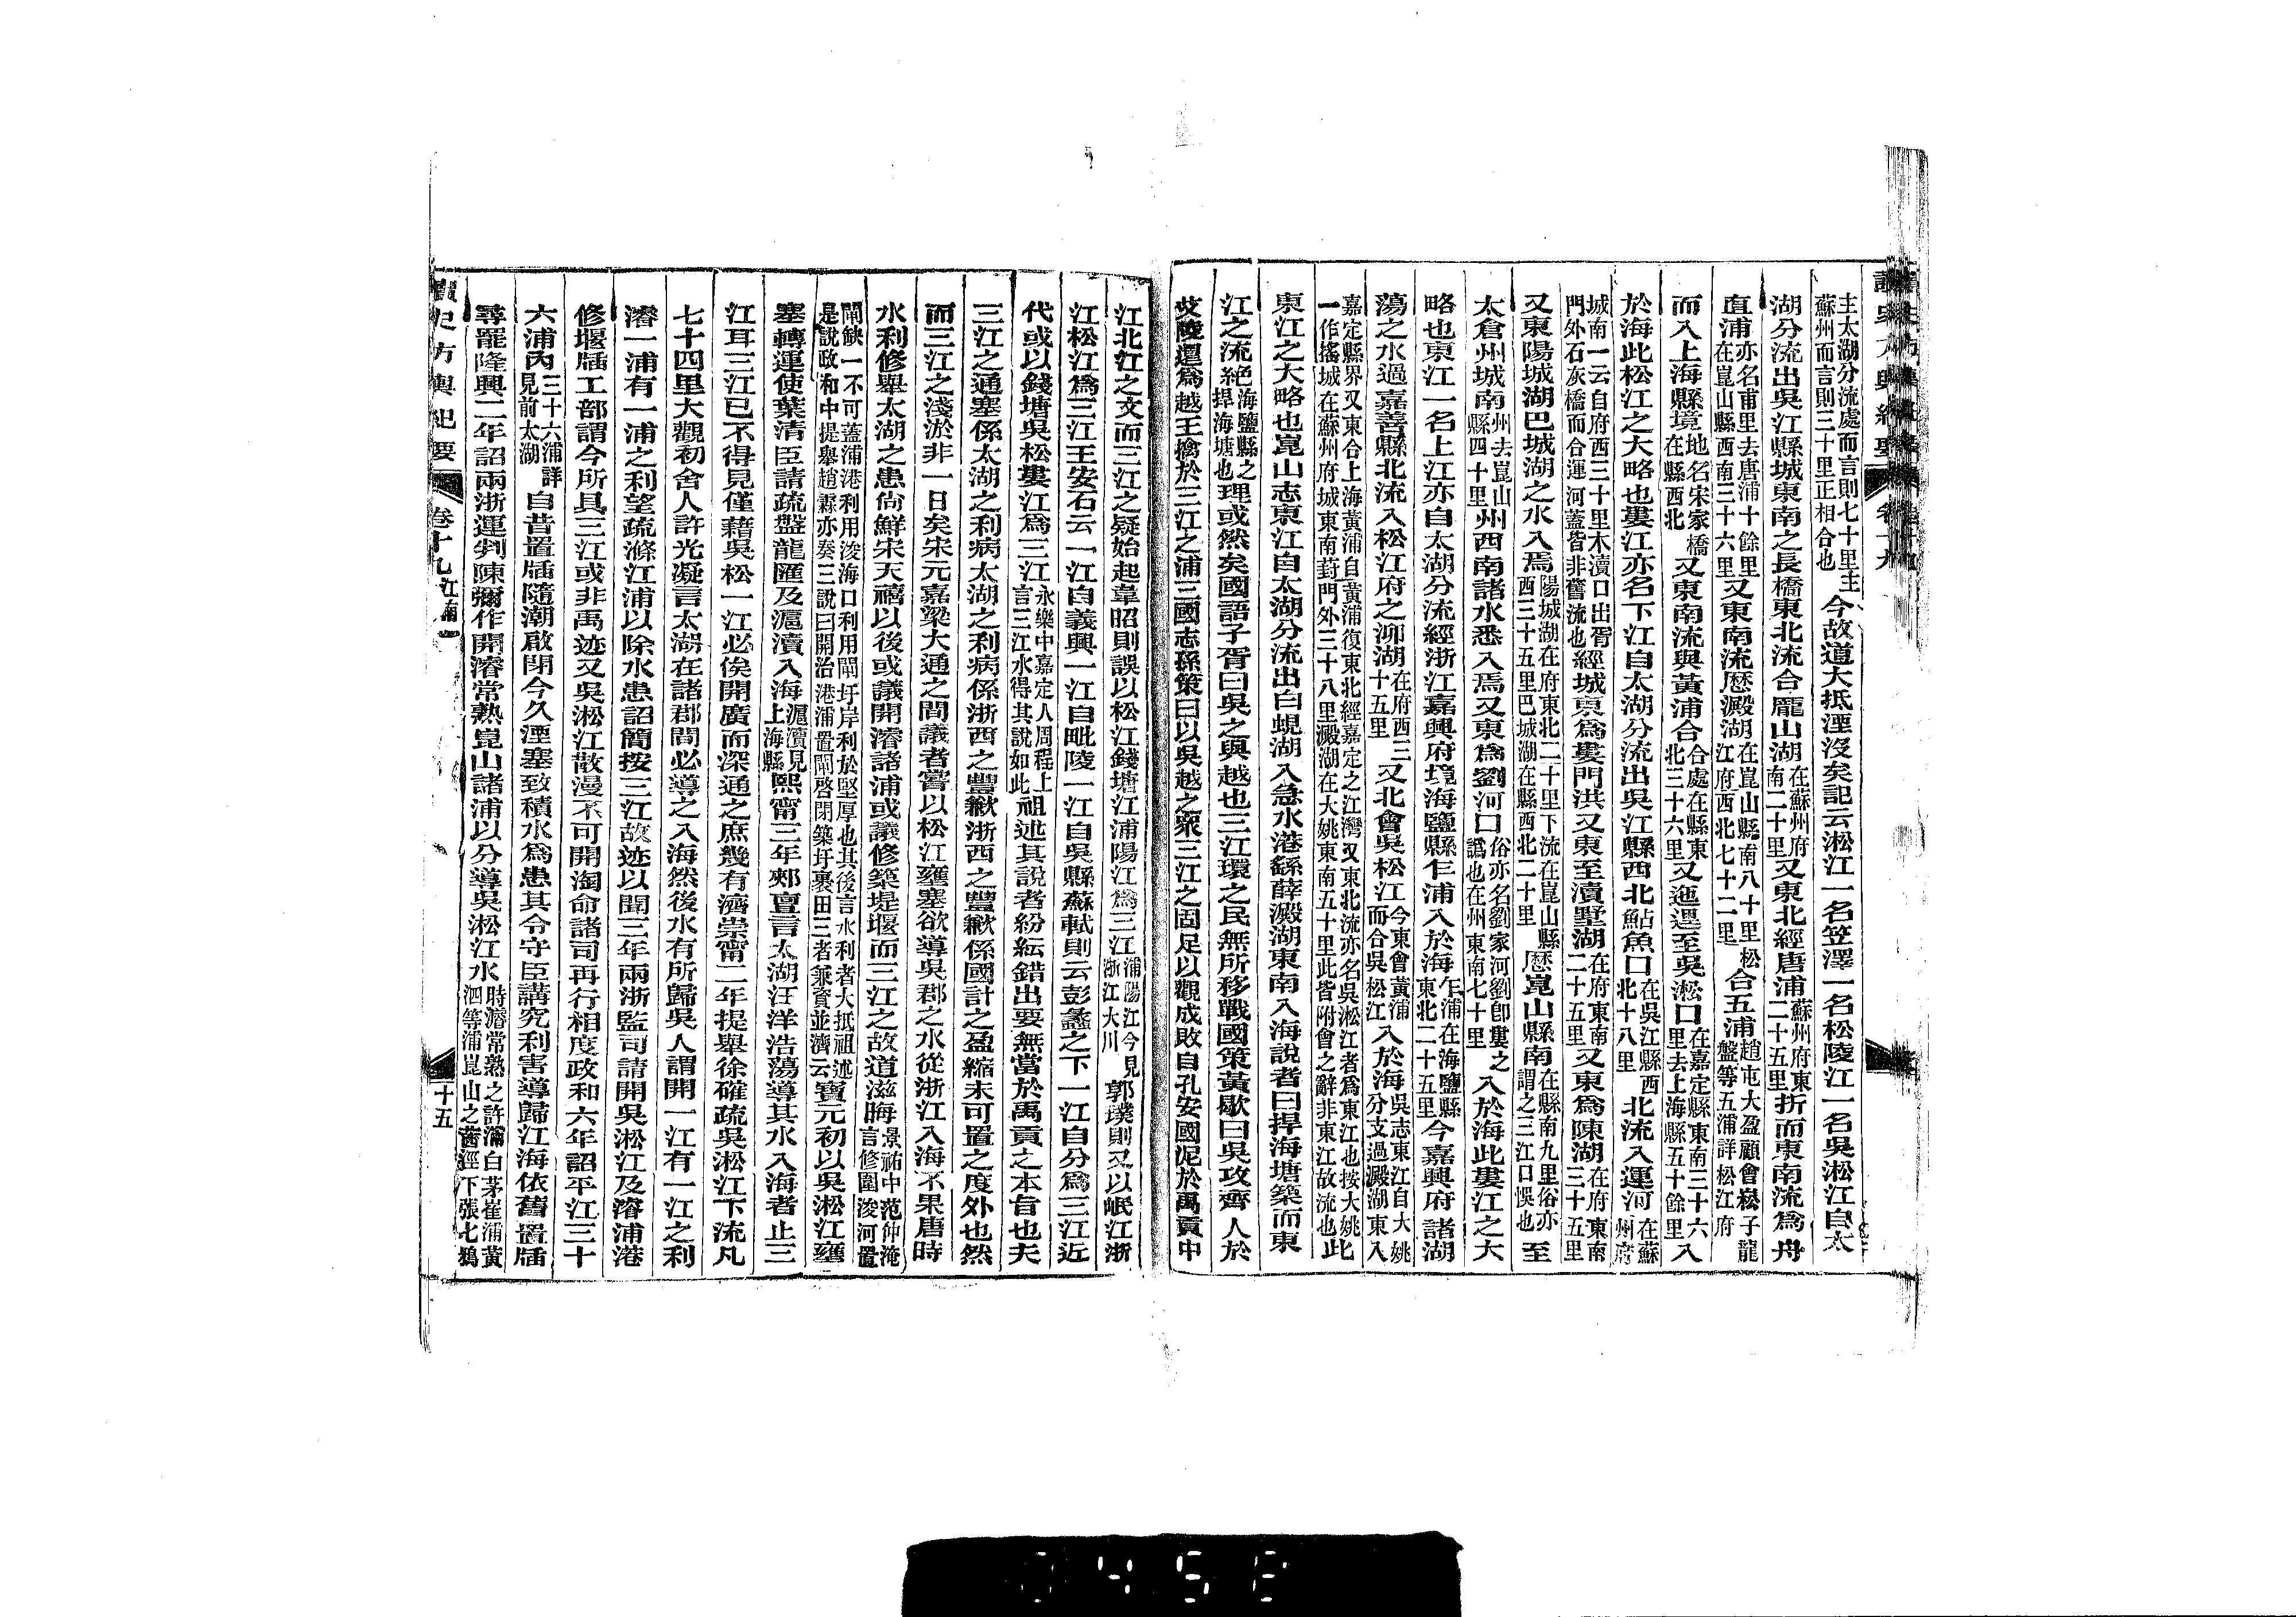 主太湖分流處而言則七十里主
蘇州而言則三十里正相合也
今故道大抵湮沒矣記云淞江一名笠澤一名松陵江一名吳淞江自太
湖分流出吳江縣城東南之長橋東北流合龐山湖在蘇州府南二十里又東北經唐浦蘇州府東二十五里折而東南流為舟
直浦亦名甫里去唐浦十餘里在崑山縣西南三十六里又東南流歷澱湖在崑山縣南八十里松江府西北七十二里合五浦趙屯大盈顧會崧子龍盤等五浦詳松江府
而入上海縣境地名宋家橋在縣西北又東南流與黃浦合合處在縣東北三十六里又迤邐至吳淞口在嘉定縣東南三十六里去上海縣五十餘里入
於海此松江之大略也婁江亦名下江自太湖分流出吳江縣西北鮎魚口在吳江縣西北十八里北流入運河在蘇州府
城南一云自府西三十里木瀆口出胥門外石灰橋而合運河蓋皆非舊流也經城東為婁門洪又東至瀆墅湖在府東南二十五里又東為陳湖在府東南三十五里
又東陽城湖巴城湖之水入焉陽城湖在府東北二十里下流在崑山縣西三十五里巴城湖在縣西北二十里歷崑山縣南在縣南九里俗亦謂之三江口悞也至
太倉州城南州去崑山縣四十里州西南諸水悉入焉又東為劉河口俗亦名劉家河劉卽婁之譌也在州東南七十里入於海此婁江之大
略也東江一名上江亦自太湖分流經浙江嘉興府境海鹽縣乍浦入於海乍浦在海鹽縣東北二十五里今嘉興府諸湖
蕩之水過嘉善縣北流入松江府之泖湖在府西三十五里又北會吳松江今東會黃浦而合吳松江入於海吳志東江自大姚分支過澱湖東入
嘉定縣界又東合上海黃浦自黃浦復東北經嘉定之江灣又東北流亦名吳淞江者為東江也按大姚一作搖城在蘇州府城東南葑門外三十八里澱湖在大姚東南五十里此皆附會之辭非東江故流也此
東江之大略也崑山志東江自太湖分流出白蜆湖入急水港繇薛澱湖東南入海說者曰捍海塘築而東
江之流絶海鹽縣之捍海塘也理或然矣國語子胥曰吳之與越也三江環之民無所移戰國策黃歇曰吳攻齊人於
艾陵還為越王擒於三江之浦三國志孫策曰以吳越之衆三江之固足以觀成敗自孔安國泥於禹貢中
江北江之文而三江之疑始起韋昭則誤以松江錢塘江浦陽江為三江浦陽江今見浙江大川郭璞則又以岷江浙
江松江為三江王安石云一江自義興一江自毗陵一江自吳縣蘇軾則云彭蠡之下一江自分為三江近
代或以錢塘吳松婁江為三江永樂中嘉定人周程上言三江水得其說如此祖述其說者紛紜錯出要無當於禹貢之本旨也夫
三江之通塞係太湖之利病太湖之利病係浙西之豐歉浙西之豐歉係國計之盈縮未可置之度外也然
而三江之淺淤非一日矣宋元嘉梁大通之間議者嘗以松江壅塞欲導吳郡之水從浙江入海不果唐時
水利修舉太湖之患尙鮮宋天禧以後或議開濬諸浦或議修築堤堰而三江之故道滋晦景祐中范仲淹言修圍浚河置
閘缺一不可蓋浦港利用浚海口利用閘圩岸利於堅厚也其後言水利者大抵祖述是說政和中提舉趙霖亦奏三說曰開治港浦置閘啓閉築圩裹田三者兼資並濟云寶元初以吳淞江壅
塞轉運使葉清臣請疏盤龍匯及滬瀆入海滬瀆見上海縣熙甯三年郟亶言太湖汪洋浩蕩導其水入海者止三
江耳三江已不得見僅藉吳松一江必俟開廣而深通之庶幾有濟崇甯二年提舉徐確疏吳淞江下流凡
七十四里大觀初舍人許光凝言太湖在諸郡間必導之入海然後水有所歸吳人謂開一江有一江之利
濬一浦有一浦之利望疏滌江浦以除水患詔簡按三江故迹以聞三年兩浙監司請開吳淞江及濬浦港
修堰牐工部謂今所具三江或非禹迹又吳淞江散漫不可開淘命諸司再行相度政和六年詔平江三十
六浦內三十六浦詳見前太湖自昔置牐隨潮啟閉今久湮塞致積水為患其令守臣講究利害導歸江海依舊置牐
尋罷隆興二年詔兩浙運判陳彌作開濬常熟崑山諸浦以分導吳淞江水時濬常熟之許浦白茅崔浦黃泗等浦崑山之茜涇下張七鴉
讀史方輿紀要
卷十九 江南一
十五